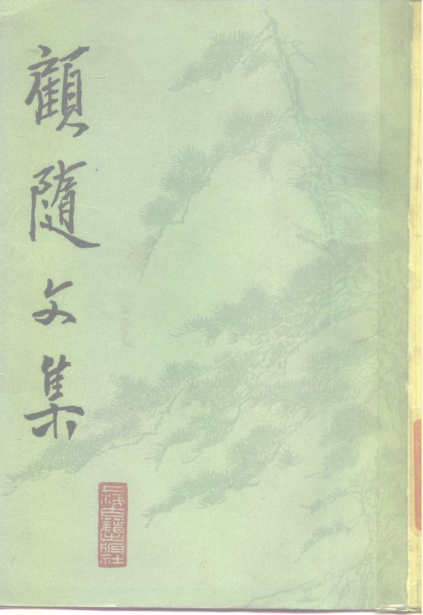 顧隨文集
上海古籍出版社